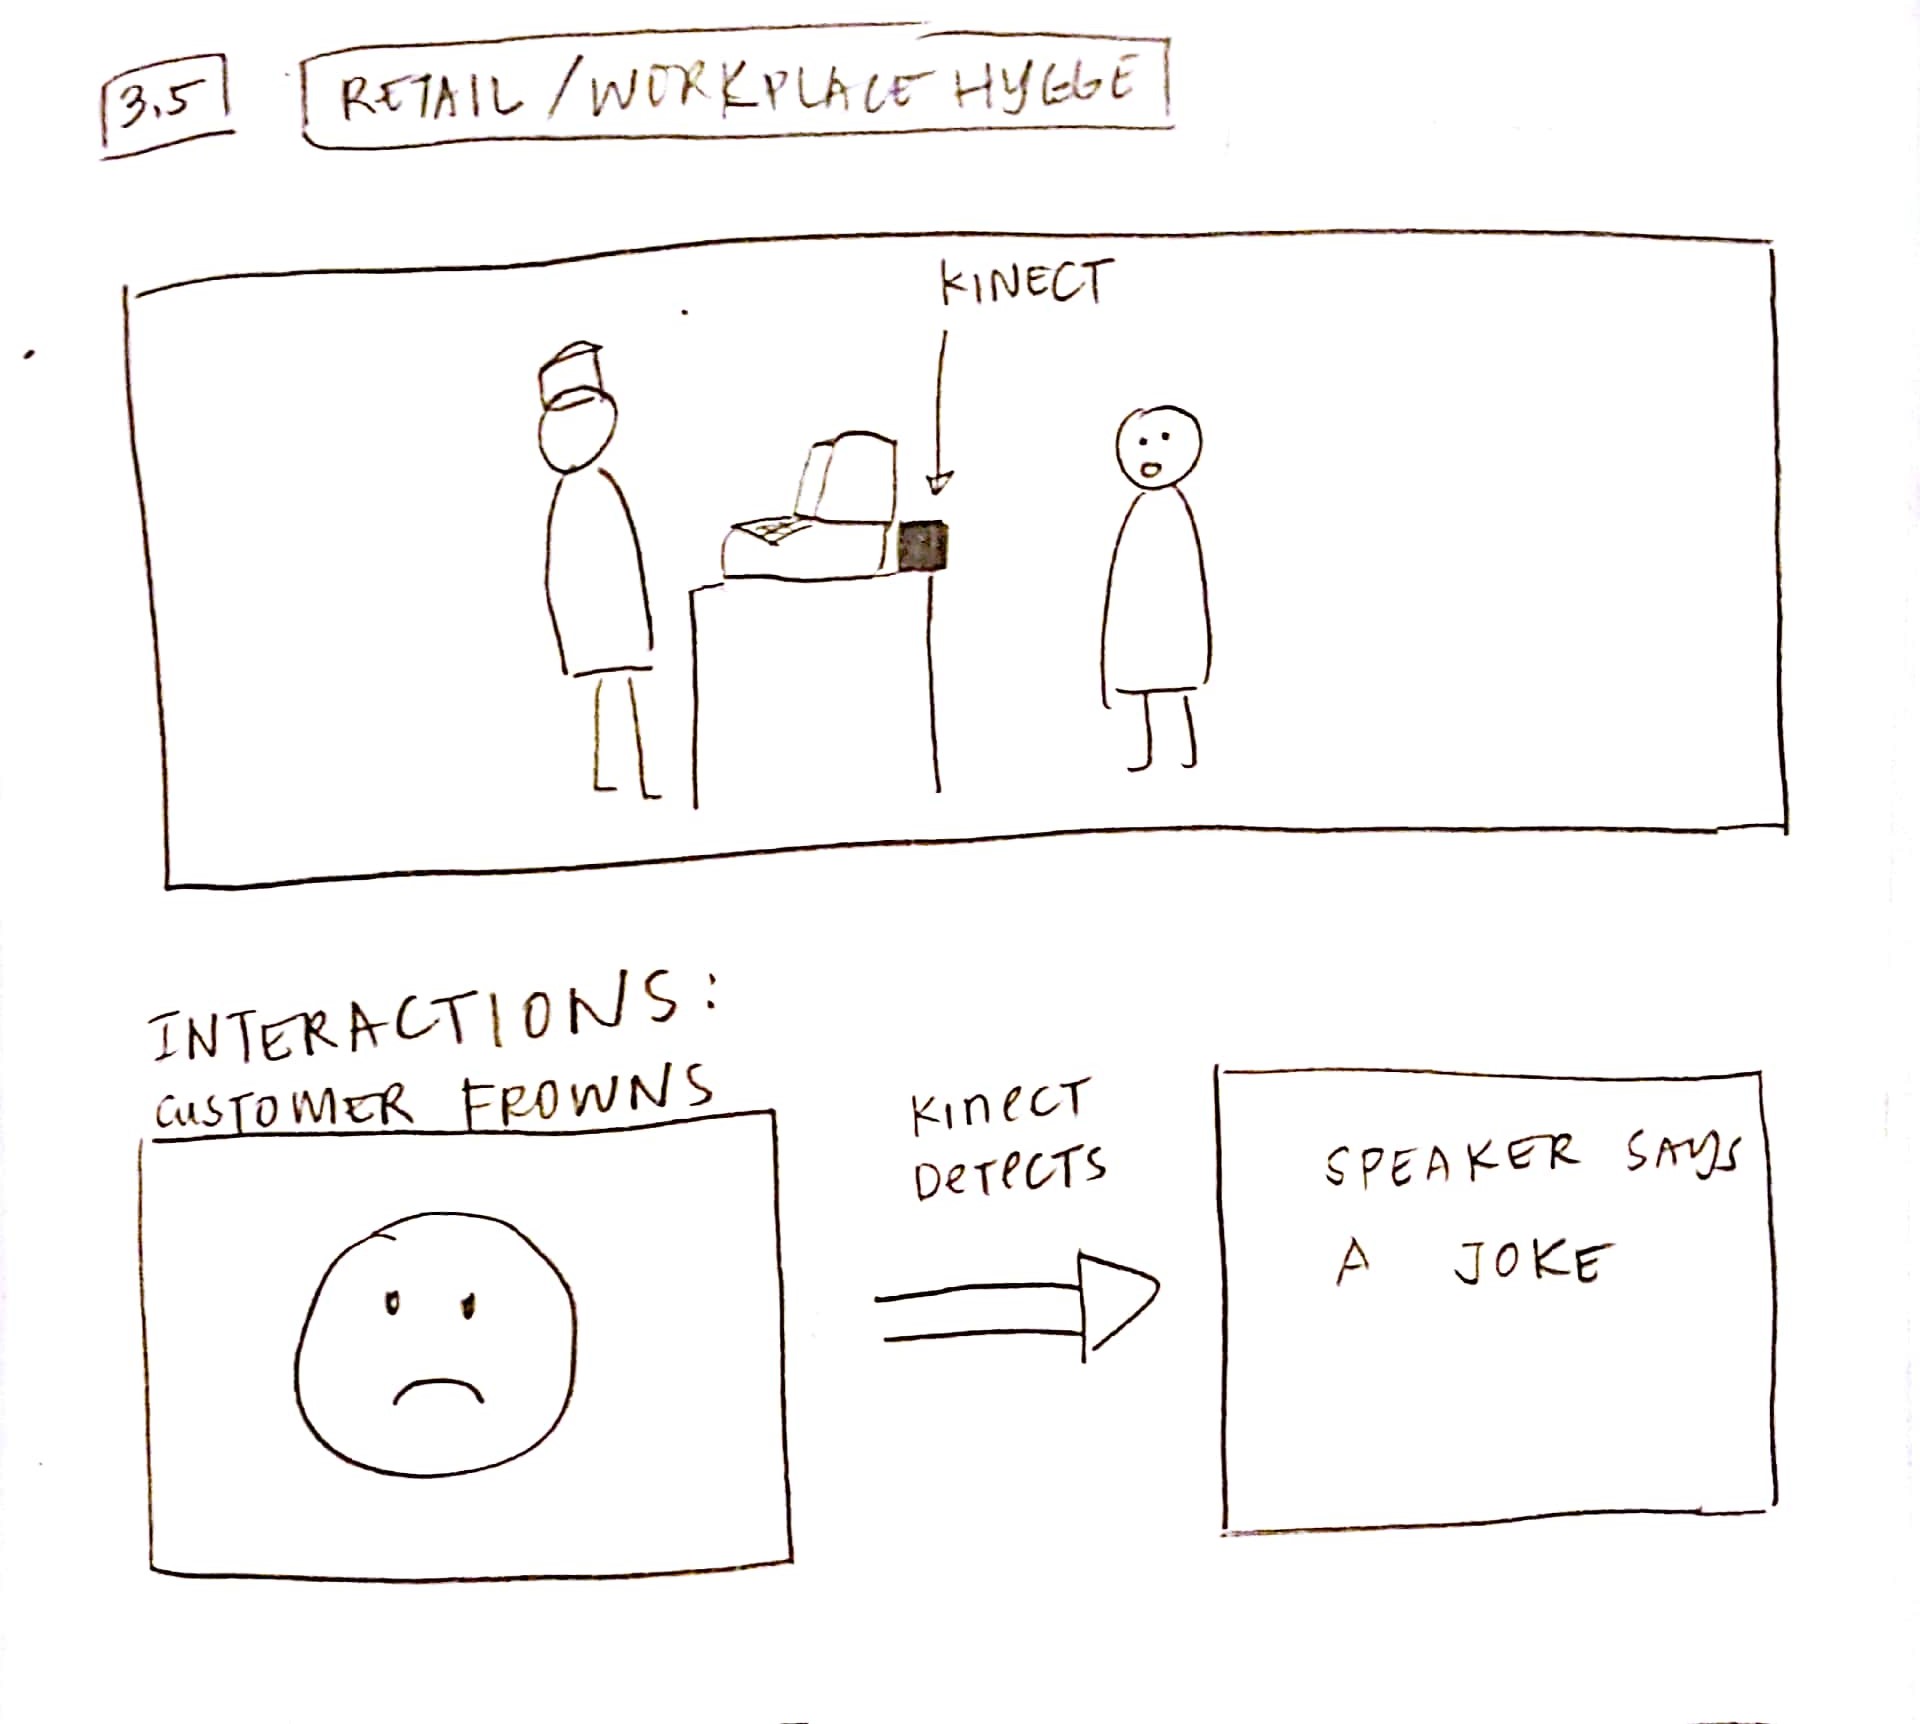 3.5
RETAIL/WORKPLACE HYGGE
KINECT
INTERACTIONS:
CUSTOMER FROWNS
KINECT
DETECTS
SPEAKER SAYS
A JOKE